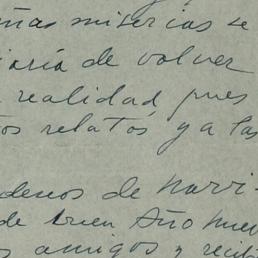 ñas miserias se
iaría de volver
realidad, pues
tos relatos y a las
denos de Navi-
de buen Año Nuev
s amigos y recib